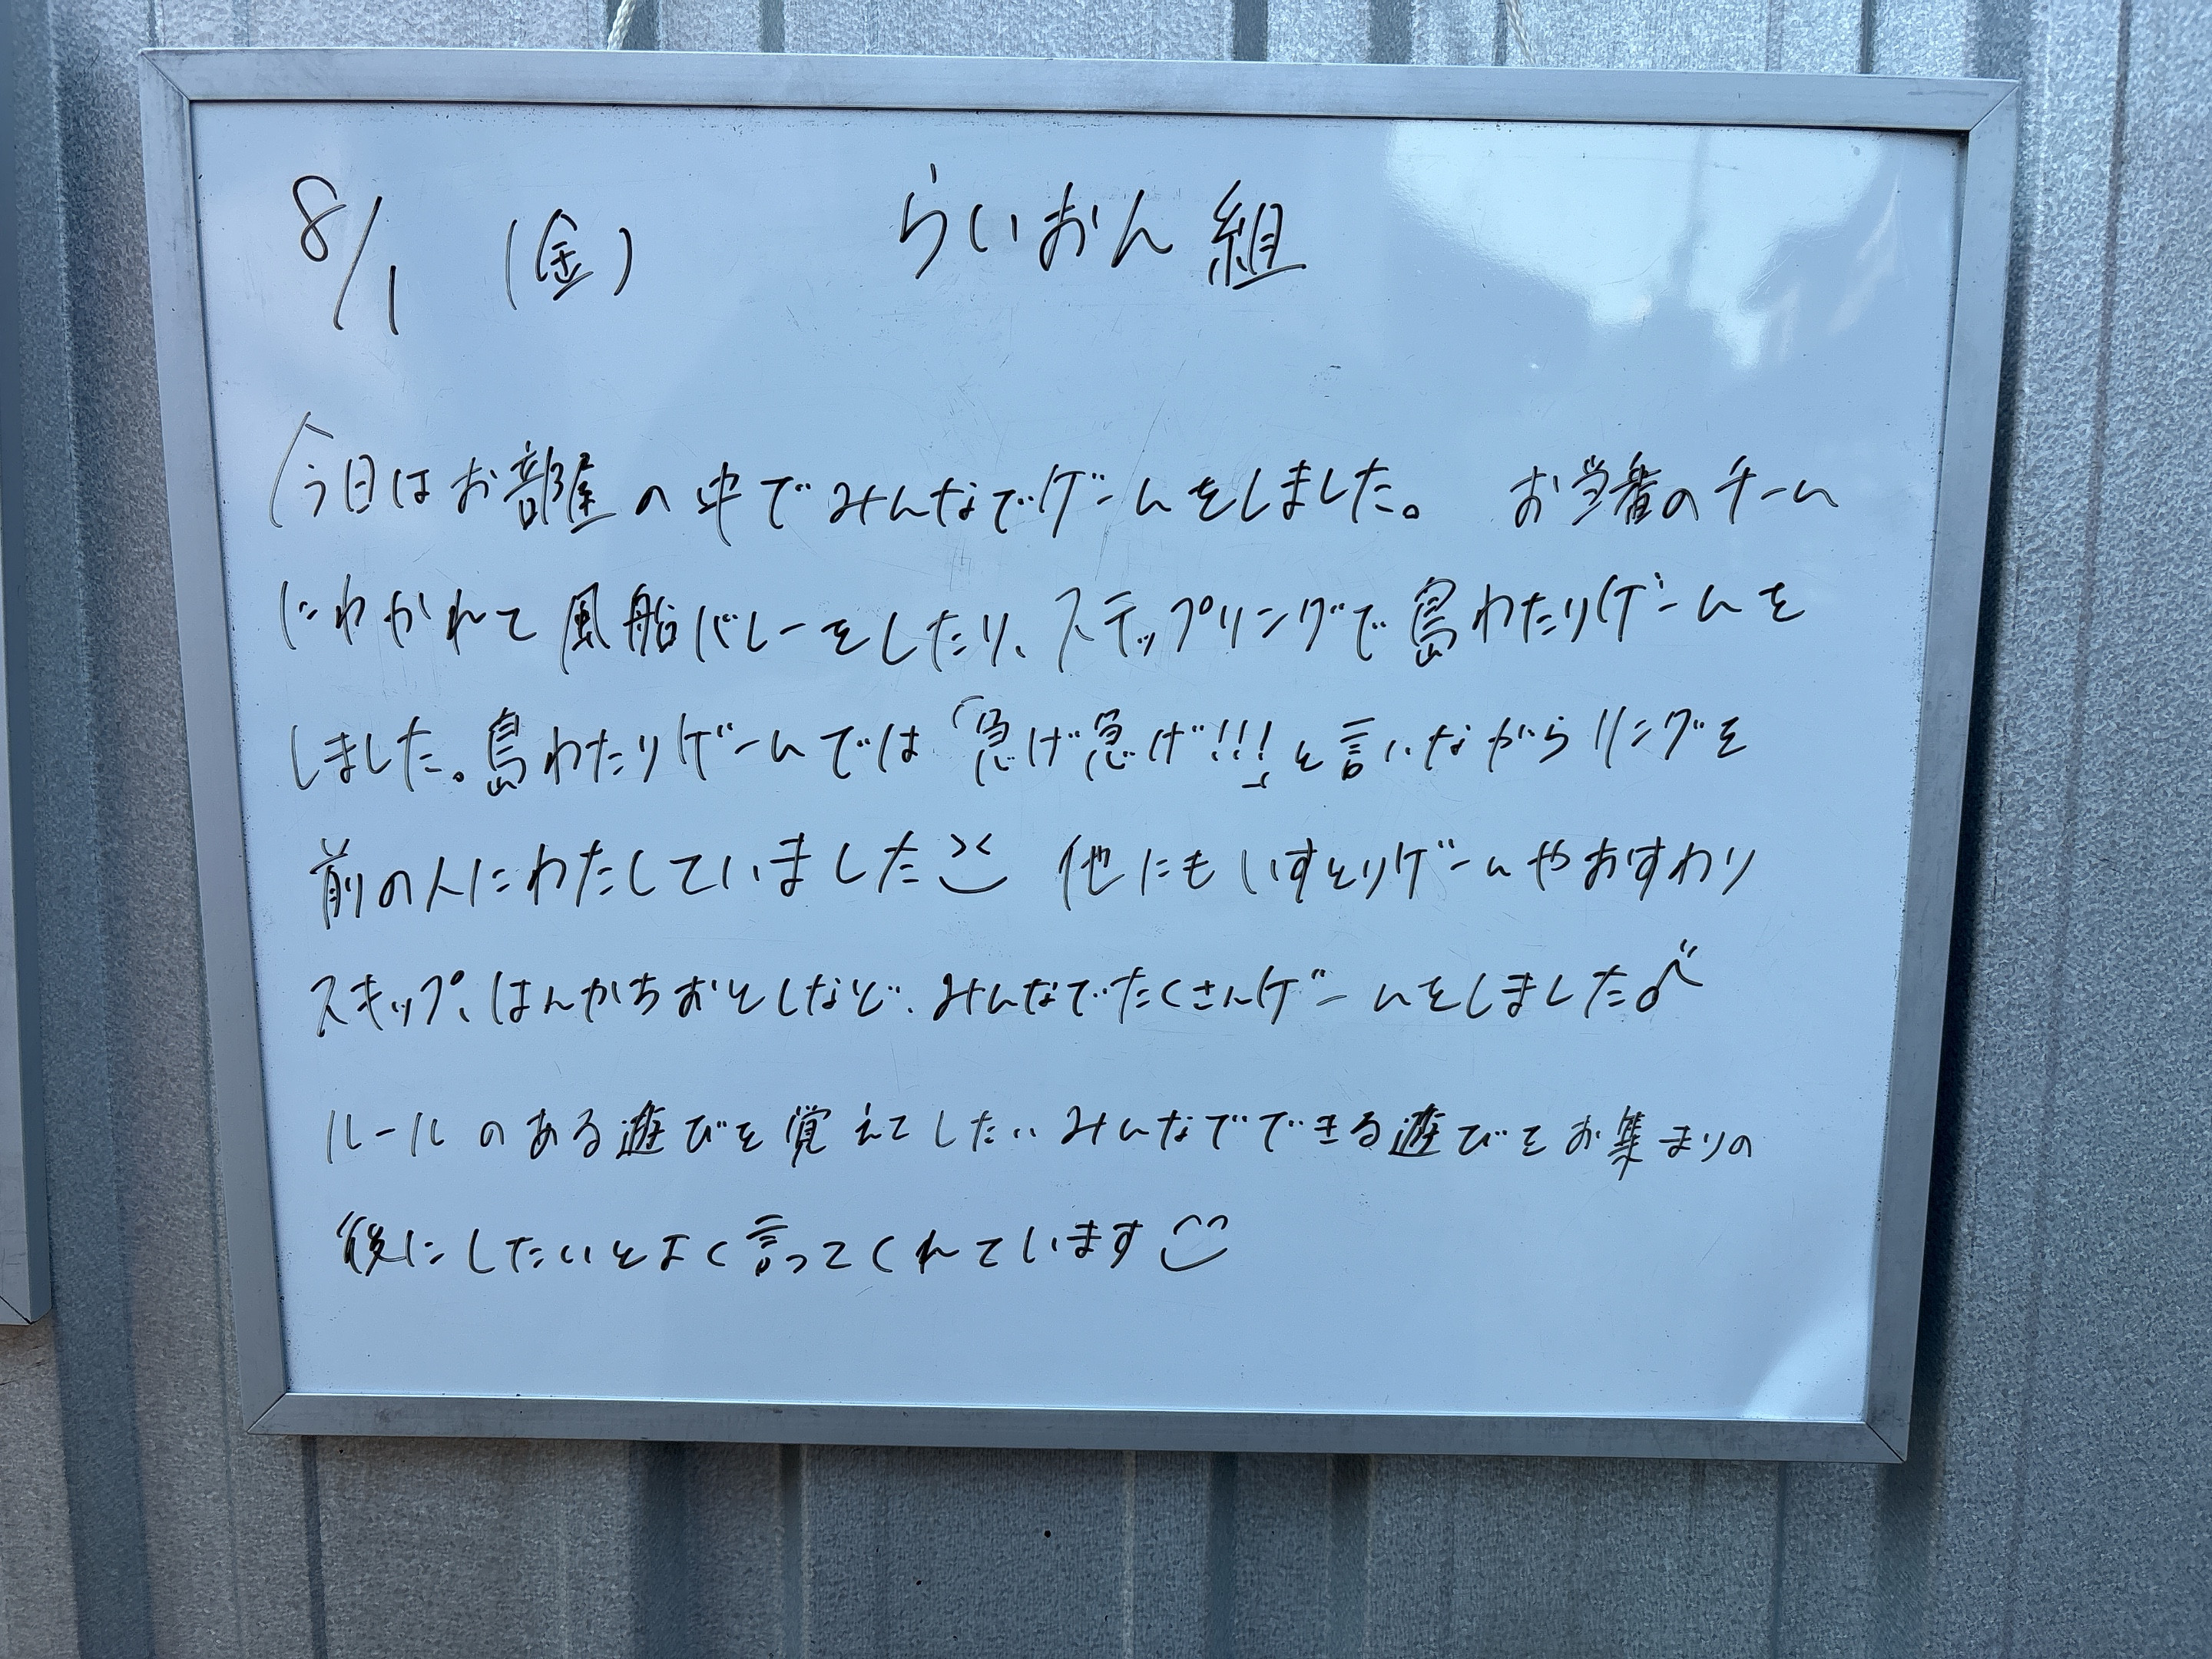 8/1 (金) らいおん組
今日はお部屋の中でみんなでゲームをしました。 お当番のチーム
にわかれて風船バレーをしたり、ステップリングで島わたりゲームを
しました。島わたりゲームでは「急げ急げ!!!」と言いながらリングを
前の人にわたしていました 他にもいすとりゲームやおすわり
スキップ、はんかちおとしなど、みんなでたくさんゲームをしました♪
ルールのある遊びを覚えてしたい、みんなでできる遊びをお集まりの
後にしたいとよく言ってくれています